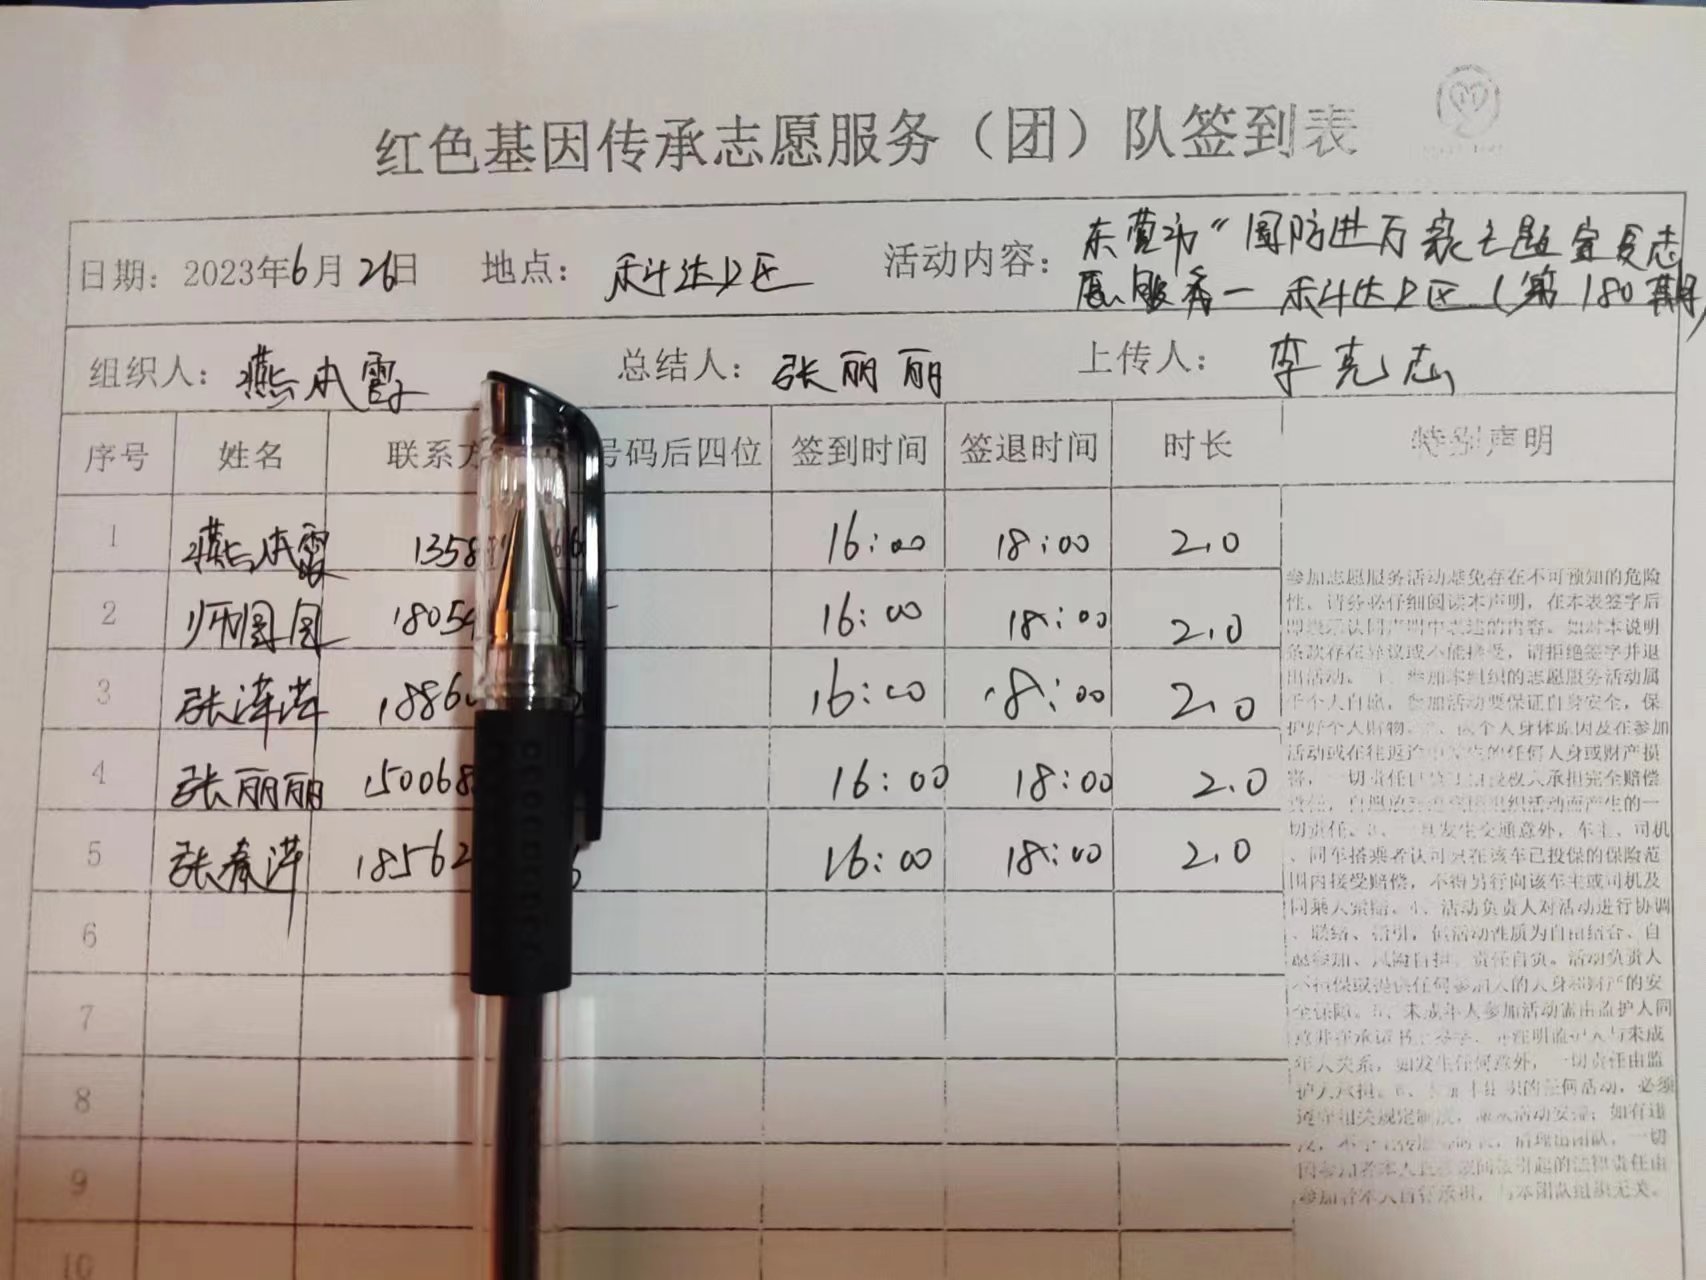 红色基因传承志愿服务（团）队签到表
日期：2023年6月26日 地点： 活动内容：东营市“国防进万家主题宣
愿服务一 （第180期）
组织人：燕本 总结人：张丽丽 上传人：李克志
序号 姓名 联系方 号码后四位 签到时间 签退时间 时长 特别声明
1 燕本 1358 16:00 18:00 2.0
2 1805 16:00 18:00 2.0
3 张萍萍 1886 16:00 18:00 2.0
4 张丽丽 15006 16:00 18:00 2.0
5 张春萍 18562 16:00 18:00 2.0
6
7
8
9
10
参加志愿服务活动难免存在不可预知的危险
性、请务必仔细阅读本声明，在本表签字后
即表示认同声明中表述的内容。如对本说明
条款存在异议或不能接受，请拒绝签字并退
出活动。1、参加本组织的志愿服务活动属
于个人自愿，参加活动要保证自身安全，保
护好个人财物。 个人身体原因及在参加
活动或在往返途中 的任何人身或财产损
害，一切责任 承担完全赔偿
责任， 组织活动而产生的一
切责任。3、一旦发生交通意外，车主、司机
、同车搭乘者认可只在该车已投保的保险范
围内接受赔偿，不得另行向该车主或司机及
同乘人索赔。4、活动负责人对活动进行协调
、联络、指引，但活动性质为自由结合、自
愿参加、风险自担、责任自负。活动负责人
不担保或提供任何参加人的人身和财产的安
全保障。5、未成年人参加活动需由监护人同
意并在承诺书上签字、并注明监护人与未成
年人关系，如发生任何意外，一切责任由监
护人承担。6、 的任何活动，必须
遵守相关规定制度， 活动安排；如有违
清理出团队，一切
引起的法律责任由
参加者本人自行承担，与本团队组织无关。